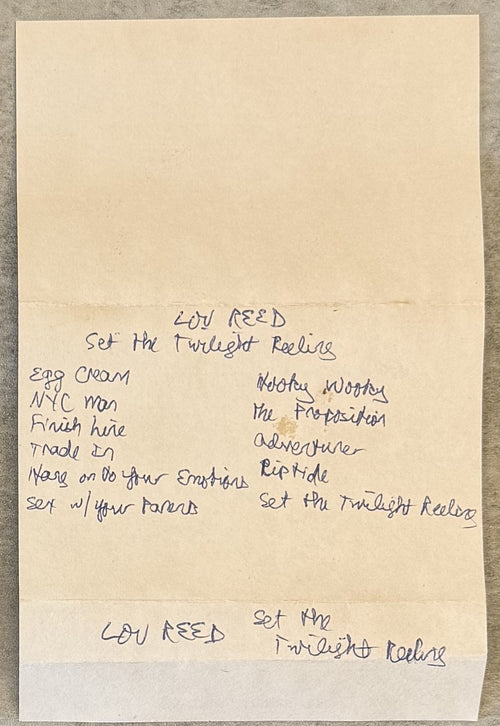 LOU REED
Set the Twilight Reeling
Egg Cream
NYC Man
Finish Line
Trade In
Hang on to Your Emotions
Sex w/ your Parents
Hooky Wooky
the Proposition
Adventurer
Riptide
Set the Twilight Reeling
LOU REED
Set the
Twilight Reeling